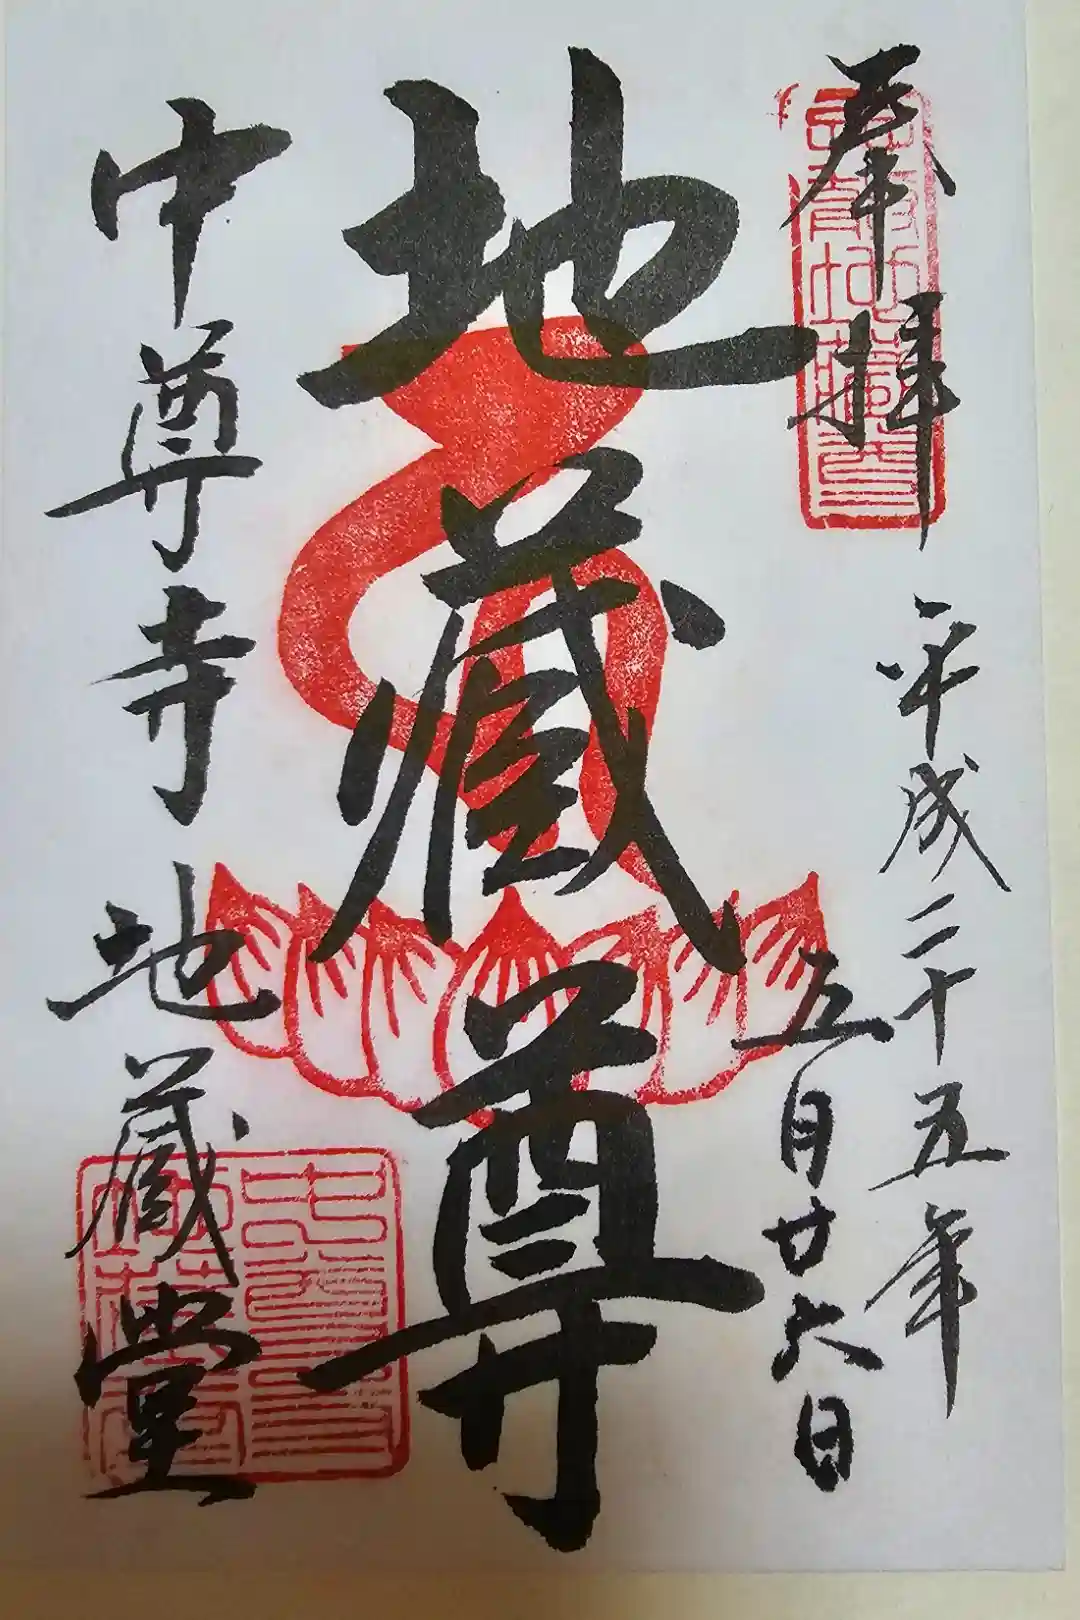 奉拝
平成二十五年
五月廿六日
地蔵尊
中尊寺地蔵堂